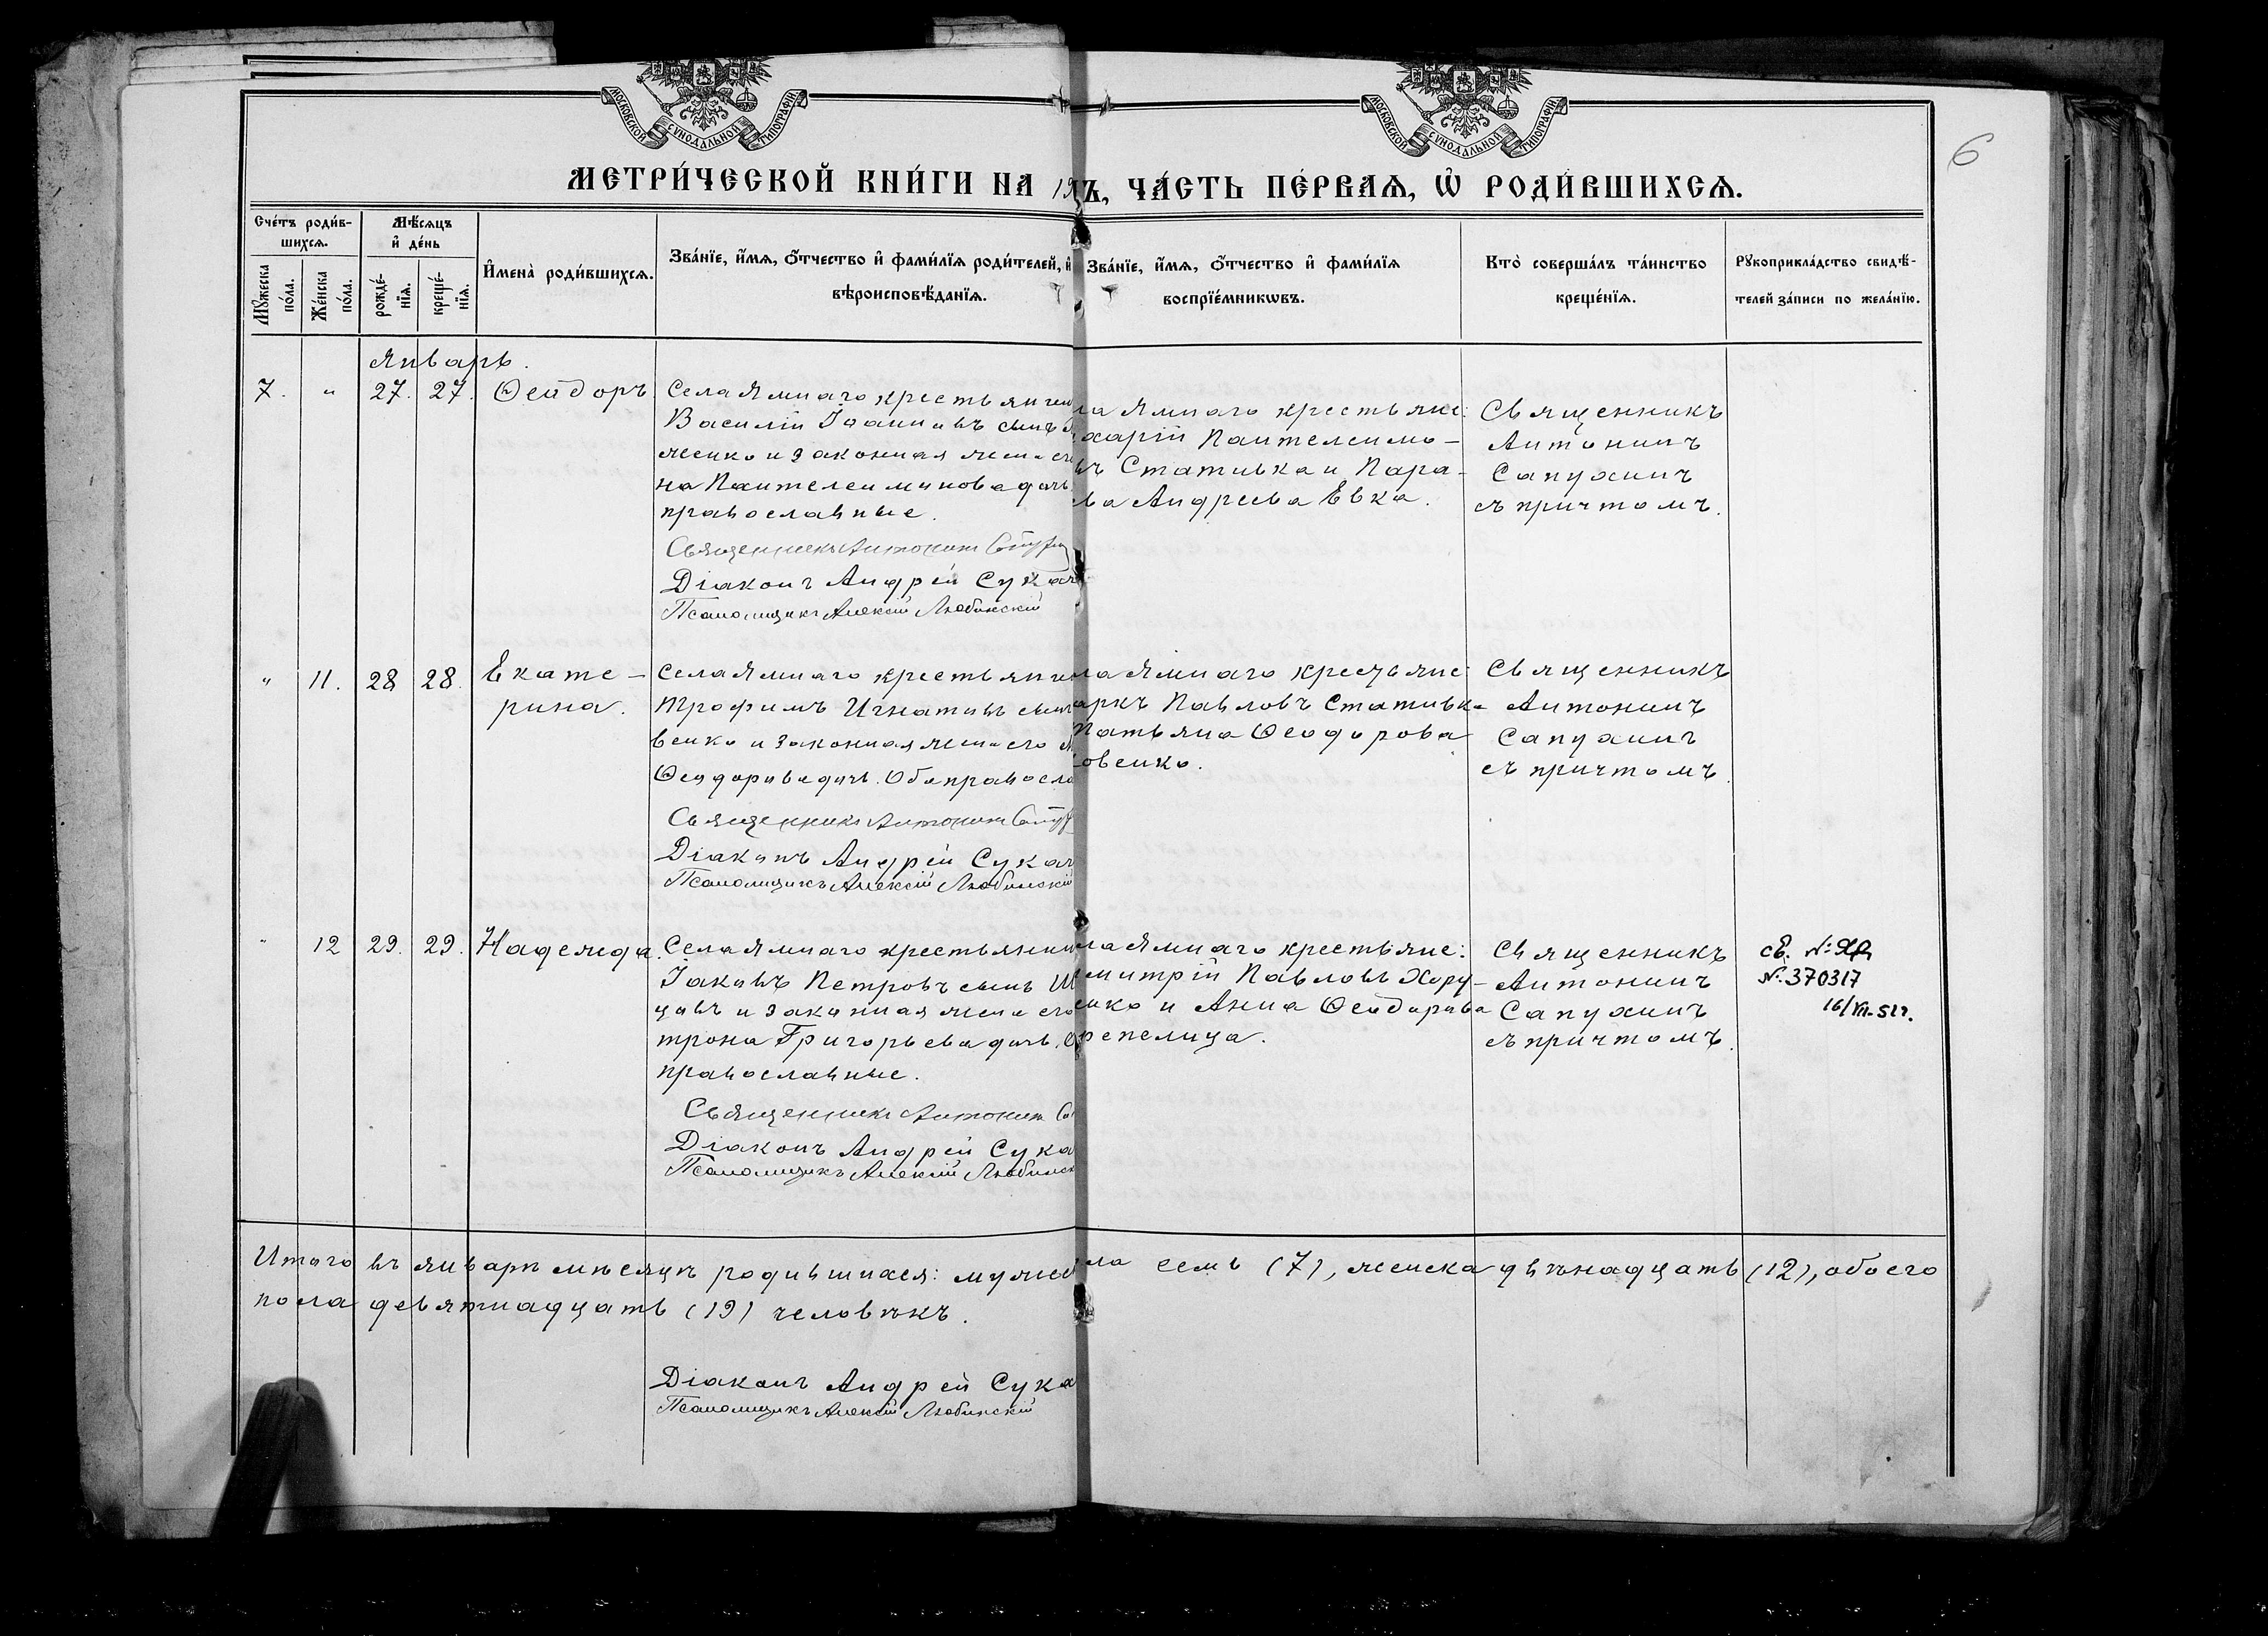 МОСКОВСКОЙ СУНОДАЛЬНОЙ ТИПОГРАФІИ
МОСКОВСКОЙ СУНОДАЛЬНОЙ ТИПОГРАФІИ
6
МЕТРИ́ЧЕСКОЙ КНИ́ГИ НА 19
Ъ, ЧА́СТЬ ПЕ́РВАѦ, Ѡ҆ РОДИ́ВШИХСѦ.
Сче́тъ роди́в-
шихсѧ.
Мꙋ́жеска
по́ла.
Же́нска
по́ла.
Мѣ́сѧцъ
и҆ де́нь
рожде́-
нїѧ.
креще́-
нїѧ.
И҆мена̀ роди́вшихсѧ.
Зва́нїе, и҆́мѧ, ѻ҆́тчество и҆ фами́лїѧ роди́телей, и҆
вѣроисповѣ́данїѧ.
Зва́нїе, и҆́мѧ, ѻ҆́тчество и҆ фами́лїѧ
воспрїе́мникѡвъ.
Кто̀ соверша́лъ та́инство
креще́нїѧ.
Рꙋкоприкла́дство свидѣ́-
телей за́писи по жела́нїю.
Январь.
7. " 27. 27. Ѳеодоръ
Села Ямнаго крестьянин
Василій Іоанновъ сынъ
женко и законная жена ег
на Пантелеимонова дочь
православные.
Священникъ Антонин
Діаконъ Андрей Сукач
Псаломщикъ Алексій Любинскій
ла Ямнаго крестьяне:
харій Пантелеимо-
въ Стативка и Пара-
ва Андреева Евка.
Священникъ
Антонинъ
Сапухинъ
съ причтомъ.
" 11. 28 28. Екате-
рина.
Села Ямнаго крестьянин
Трофимъ Игнатовъ сынъ
венко и законная жена его
Ѳеодорова дочь. Оба правосла
Священникъ Антонин
Діаконъ Андрей Сукач
Псаломщикъ Алексій Любинскій
ла Ямнаго крестьяне:
аркъ Павловъ Стативка
Татьяна Ѳеодорова
овенко.
Священникъ
Антонинъ
Сапухинъ
съ причтомъ.
" 12 29. 29. Надежда.
Села Ямнаго крестьянин
Іаковъ Петровъ сынъ Ш
цовъ и законная жена его
трона Григорьева дочь. О
православные.
Священникъ Антонин
Діаконъ Андрей Сука
Псаломщикъ Алексій Любинск
ла Ямнаго крестьяне:
митрій Павловъ Хору-
енко и Анна Ѳеодорова
репелица.
Священникъ
Антонинъ
Сапухинъ
съ причтомъ.
св. №
№ 370317
16/VII-51г.
Итого въ январѣ мѣсяцѣ родившихся: мужес
ла семь (7), женска двѣнадцать (12), обоего
пола девятнадцать (19) человѣкъ.
Діаконъ Андрей Сука
Псаломщикъ Алексій Любинскій